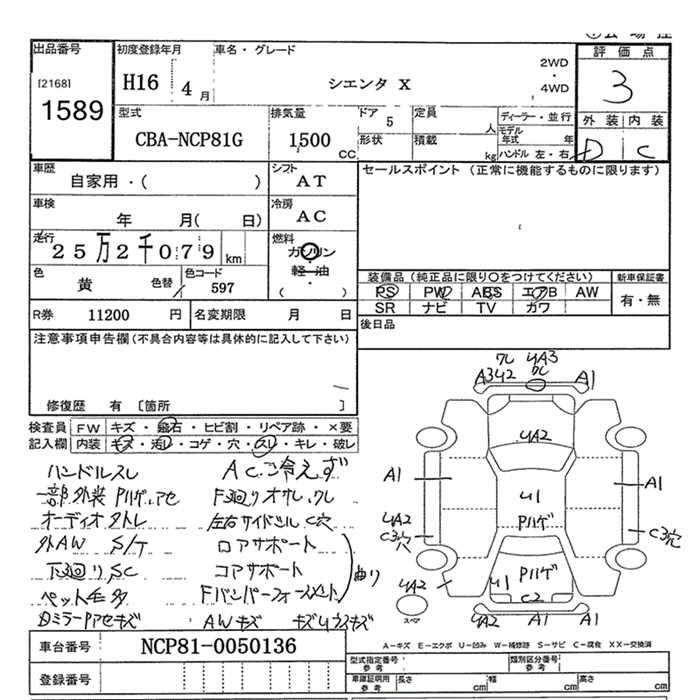 出品番号
[2168]
1589
初度登録年月
H16 4月
車名・グレード
シエンタ X
2WD
・
4WD
評価点
3
外装 内装
D C
型式
CBA-NCP81G
排気量
1500 cc
ドア 5
形状
定員 人
積載 kg
ディーラー・並行
モデル年式 年
ハンドル 左・右
車歴
自家用・( )
シフト
AT
セールスポイント (正常に機能するものに限ります)
車検
年 月( 日)
冷房
AC
走行
25万2千079 km
燃料
ガソリン
軽・油
・
( )
色
黄 色替
色コード
597
装備品 (純正品に限り○をつけてください)
PS PW ABS エアB AW
SR ナビ TV カワ
新車保証書
有・無
R券 11200 円
名変期限 月 日
後日品
注意事項申告欄 (不具合内容等は具体的に記入して下さい)
修復歴 有 〔箇所 〕
検査員記入欄
FW キズ・飛石・ヒビ割・リペア跡・×要
内装 キズ・汚レ・コゲ・穴・スレ・キレ・破レ
ハンドルスレ
ACご冷えず
一部外装Pハゲ、アセ
F廻りオサレ、クレ
オーディオ外レ
左右サイドシルC穴
外AW S/T
ロアサポート
下廻りSC
コアサポート
曲り
ペット毛多
Fバンパーフォースメント
DミラーPアセキズ
AWキズ
A342
クレ
UA3
A1
UA2
A1
U1
Pハゲ
A1
UA2
C3穴
C3穴
UA2
U1
Pハゲ
C2
UA2
A1
A1
スペア
車台番号
NCP81-0050136
登録番号
A-キズ E-エクボ U-凹み W-補修跡 S-サビ C-腐食 XX-交換済
型式指定番号 参考
類別区分番号 参考
車庫証明用 参考
長さ cm
幅 cm
高さ cm